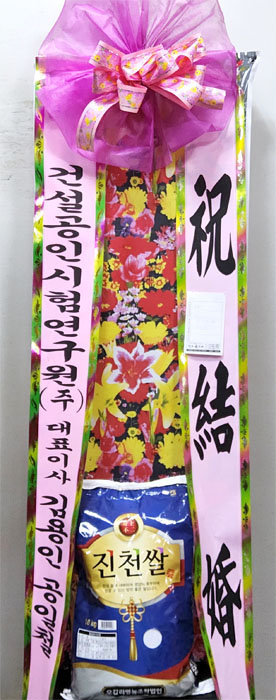 祝結婚
건설공인시험연구원(주) 대표이사 김용인 공일철
진천쌀
10kg